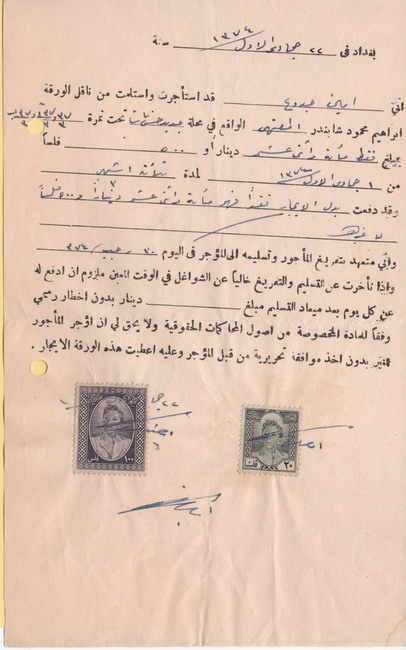 بغداد في ٢٢ جمادى الاول ١٣٧٤ سنة
انيّ امين قد استأجرت واستلمت من ناقل الورقة
ابراهيم محمود شابندر المقهى الواقع في محلة تحت نمرة
بمبلغ فقط مائة واثنى عشر دينار او ٥٠٠ فلساً
من ١ جمادى الاول ١٣٧٤ لمدة ثلاثة اشهر
وقد دفعت بدل الايجار نقداً فهو مائة واثنى عشر دينار و ٥٠٠ فلساً
لا غيره
واني متعهد بتفريغ المأجور وتسليمه الى المؤجر في اليوم ٣٠ رجب ٣٧٤
واذا تأخرت عن التسليم والتفريغ خالياً عن الشواغل في الوقت المعين ملزوم ان ادفع له
عن كل يوم بعد ميعاد التسليم مبلغ دينار بدون اخطار رسمي
وفقاً للمادة المخصوصة من اصول المحاكمات الحقوقية ولا يحق لي ان اؤجر المأجور
للغير بدون اخذ موافقة تحريرية من قبل المؤجر وعليه اعطيت هذه الورقة الايجار .
١٠٠ فلس
٢٠ فلس